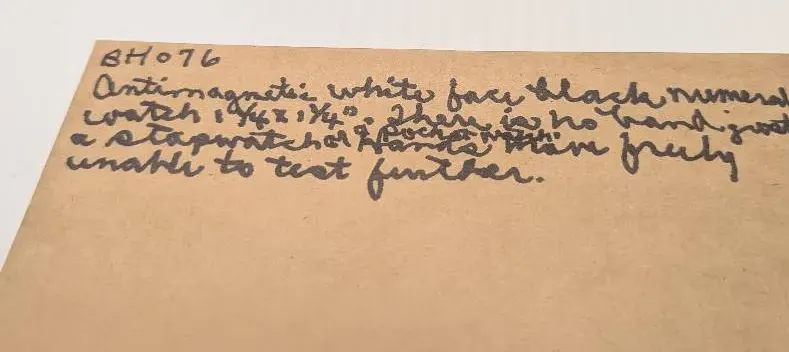 BH076
Antimagnetic white face black numeral
watch 1 3/4 x 1 1/4". There is no band just
a stopwatch or a pocket watch. Hands move freely
unable to test further.